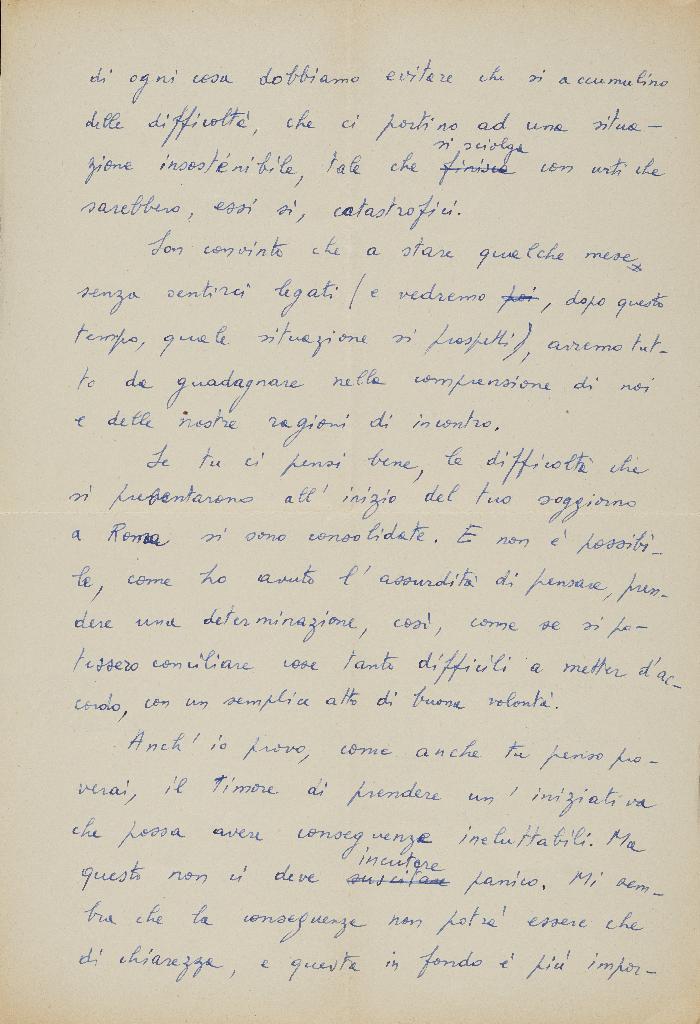 di ogni cosa dobbiamo evitare che si accumulino
delle difficoltà, che ci portino ad una situa-
zione insostenibile, tale che finisca si sciolga con urti che
sarebbero, essi sì, catastrofici.
Son convinto che a stare qualche mese
senza sentirci legati (e vedremo poi, dopo questo
tempo, quale situazione si prospetti), avremo tut-
to da guadagnare nella comprensione di noi
e delle nostre ragioni di incontro.
Se tu ci pensi bene, le difficoltà che
si presentarono all'inizio del tuo soggiorno
a Roma si sono consolidate. E non è possibi-
le, come ho avuto l'assurdità di pensare, pren-
dere una determinazione, così, come se si po-
tessero conciliare cose tanto difficili a metter d'ac-
cordo, con un semplice atto di buona volontà.
Anch'io provo, come anche tu penso pro-
verai, il timore di prendere un'iniziativa
che possa avere conseguenze ineluttabili. Ma
questo non ci deve suscitare incutere panico. Mi sem-
bra che la conseguenza non potrà essere che
di chiarezza, e questa in fondo è più impor-